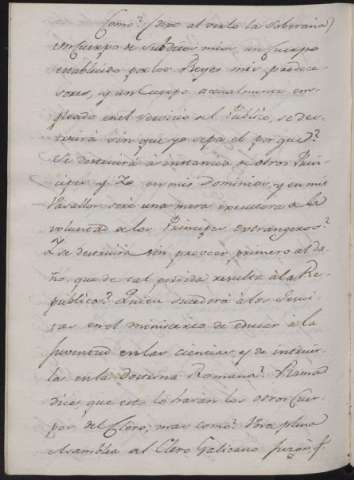 Como? (dixo al verlo la Soberana)
un Cuerpo de Subditos mios, un Cuerpo
establecido por los Reyes mis predece
sores, y un Cuerpo actualmente em
pleado en el servicio al Publico, se des
truirá sin que yo sepa el porque?
Se destruirá à instancia de otros Prin
cipes y Yo en mis Dominios, y en mis
Vasallos seré una mera executora de la
voluntad de los Principes extrangeros?
Y se destruirá sin proveer primero al da
ño, que de tal perdida resulta à la Re
publica? Quien sucederá à los Jesui
tas en el ministerio de educar à la
juventud en las ciencias, y de instruir
las en la Doctrina Romana? Roma
dice, que esto lo harán los otros Cuer
pos del Clero; mas como? Una plena
Asamblea del Clero Galicano juzgó, q.